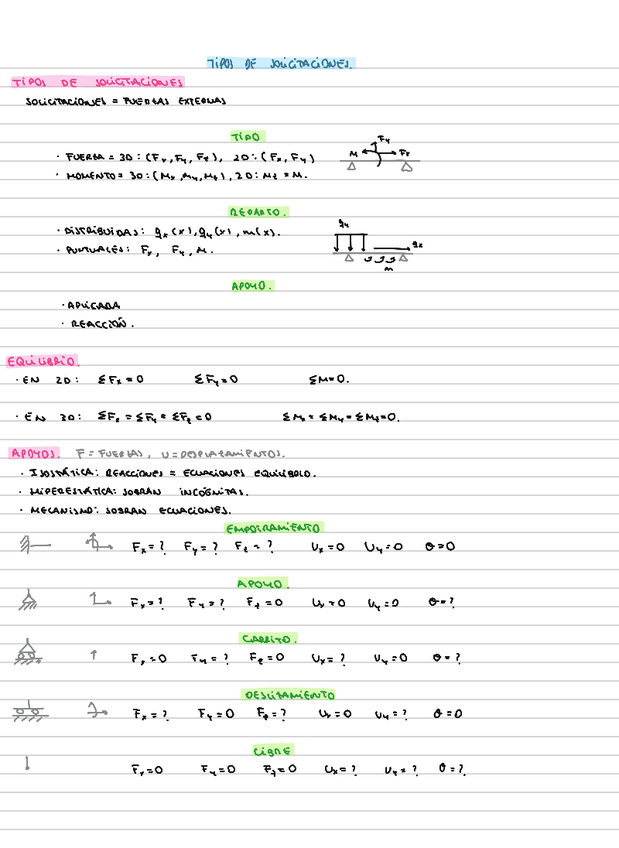 TIPOS DE SOLICITACIONES.
TIPOS DE SOLICITACIONES
SOLICITACIONES = FUERZAS EXTERNAS
TIPO
· FUERZA = 3D: (Fx, Fy, Fz), 2D: (Fx, Fy)
M Fy Fx
· MOMENTO = 3D: (Mx, My, Mz), 2D: Mz = M.
REPARTO.
· DISTRIBUIDAS: qx(x), qy(x), m(x).
qy qx m
· PUNTUALES: Fx, Fy, M.
APOYO.
· APLICADA
· REACCIÓN.
EQUILIBRIO.
· EN 2D: ΣFx = 0 ΣFy = 0 ΣM = 0.
· EN 3D: ΣFx = ΣFy = ΣFz = 0 ΣMx = ΣMy = ΣMz = 0.
APOYOS. F = FUERZAS, U = DESPLAZAMIENTOS.
· ISOSTÁTICA: REACCIONES = ECUACIONES EQUILIBRIO.
· HIPERESTÁTICA: SOBRAN INCÓGNITAS.
· MECANISMO: SOBRAN ECUACIONES.
EMPOTRAMIENTO
Fx = ? Fy = ? Fz = ? Ux = 0 Uy = 0 θ = 0
APOYO.
Fx = ? Fy = ? Fz = 0 Ux = 0 Uy = 0 θ = ?
CARRITO.
Fx = 0 Fy = ? Fz = 0 Ux = ? Uy = 0 θ = ?
DESLIZAMIENTO
Fx = ? Fy = 0 Fz = ? Ux = 0 Uy = ? θ = 0
LIBRE
Fx = 0 Fy = 0 Fz = 0 Ux = ? Uy = ? θ = ?